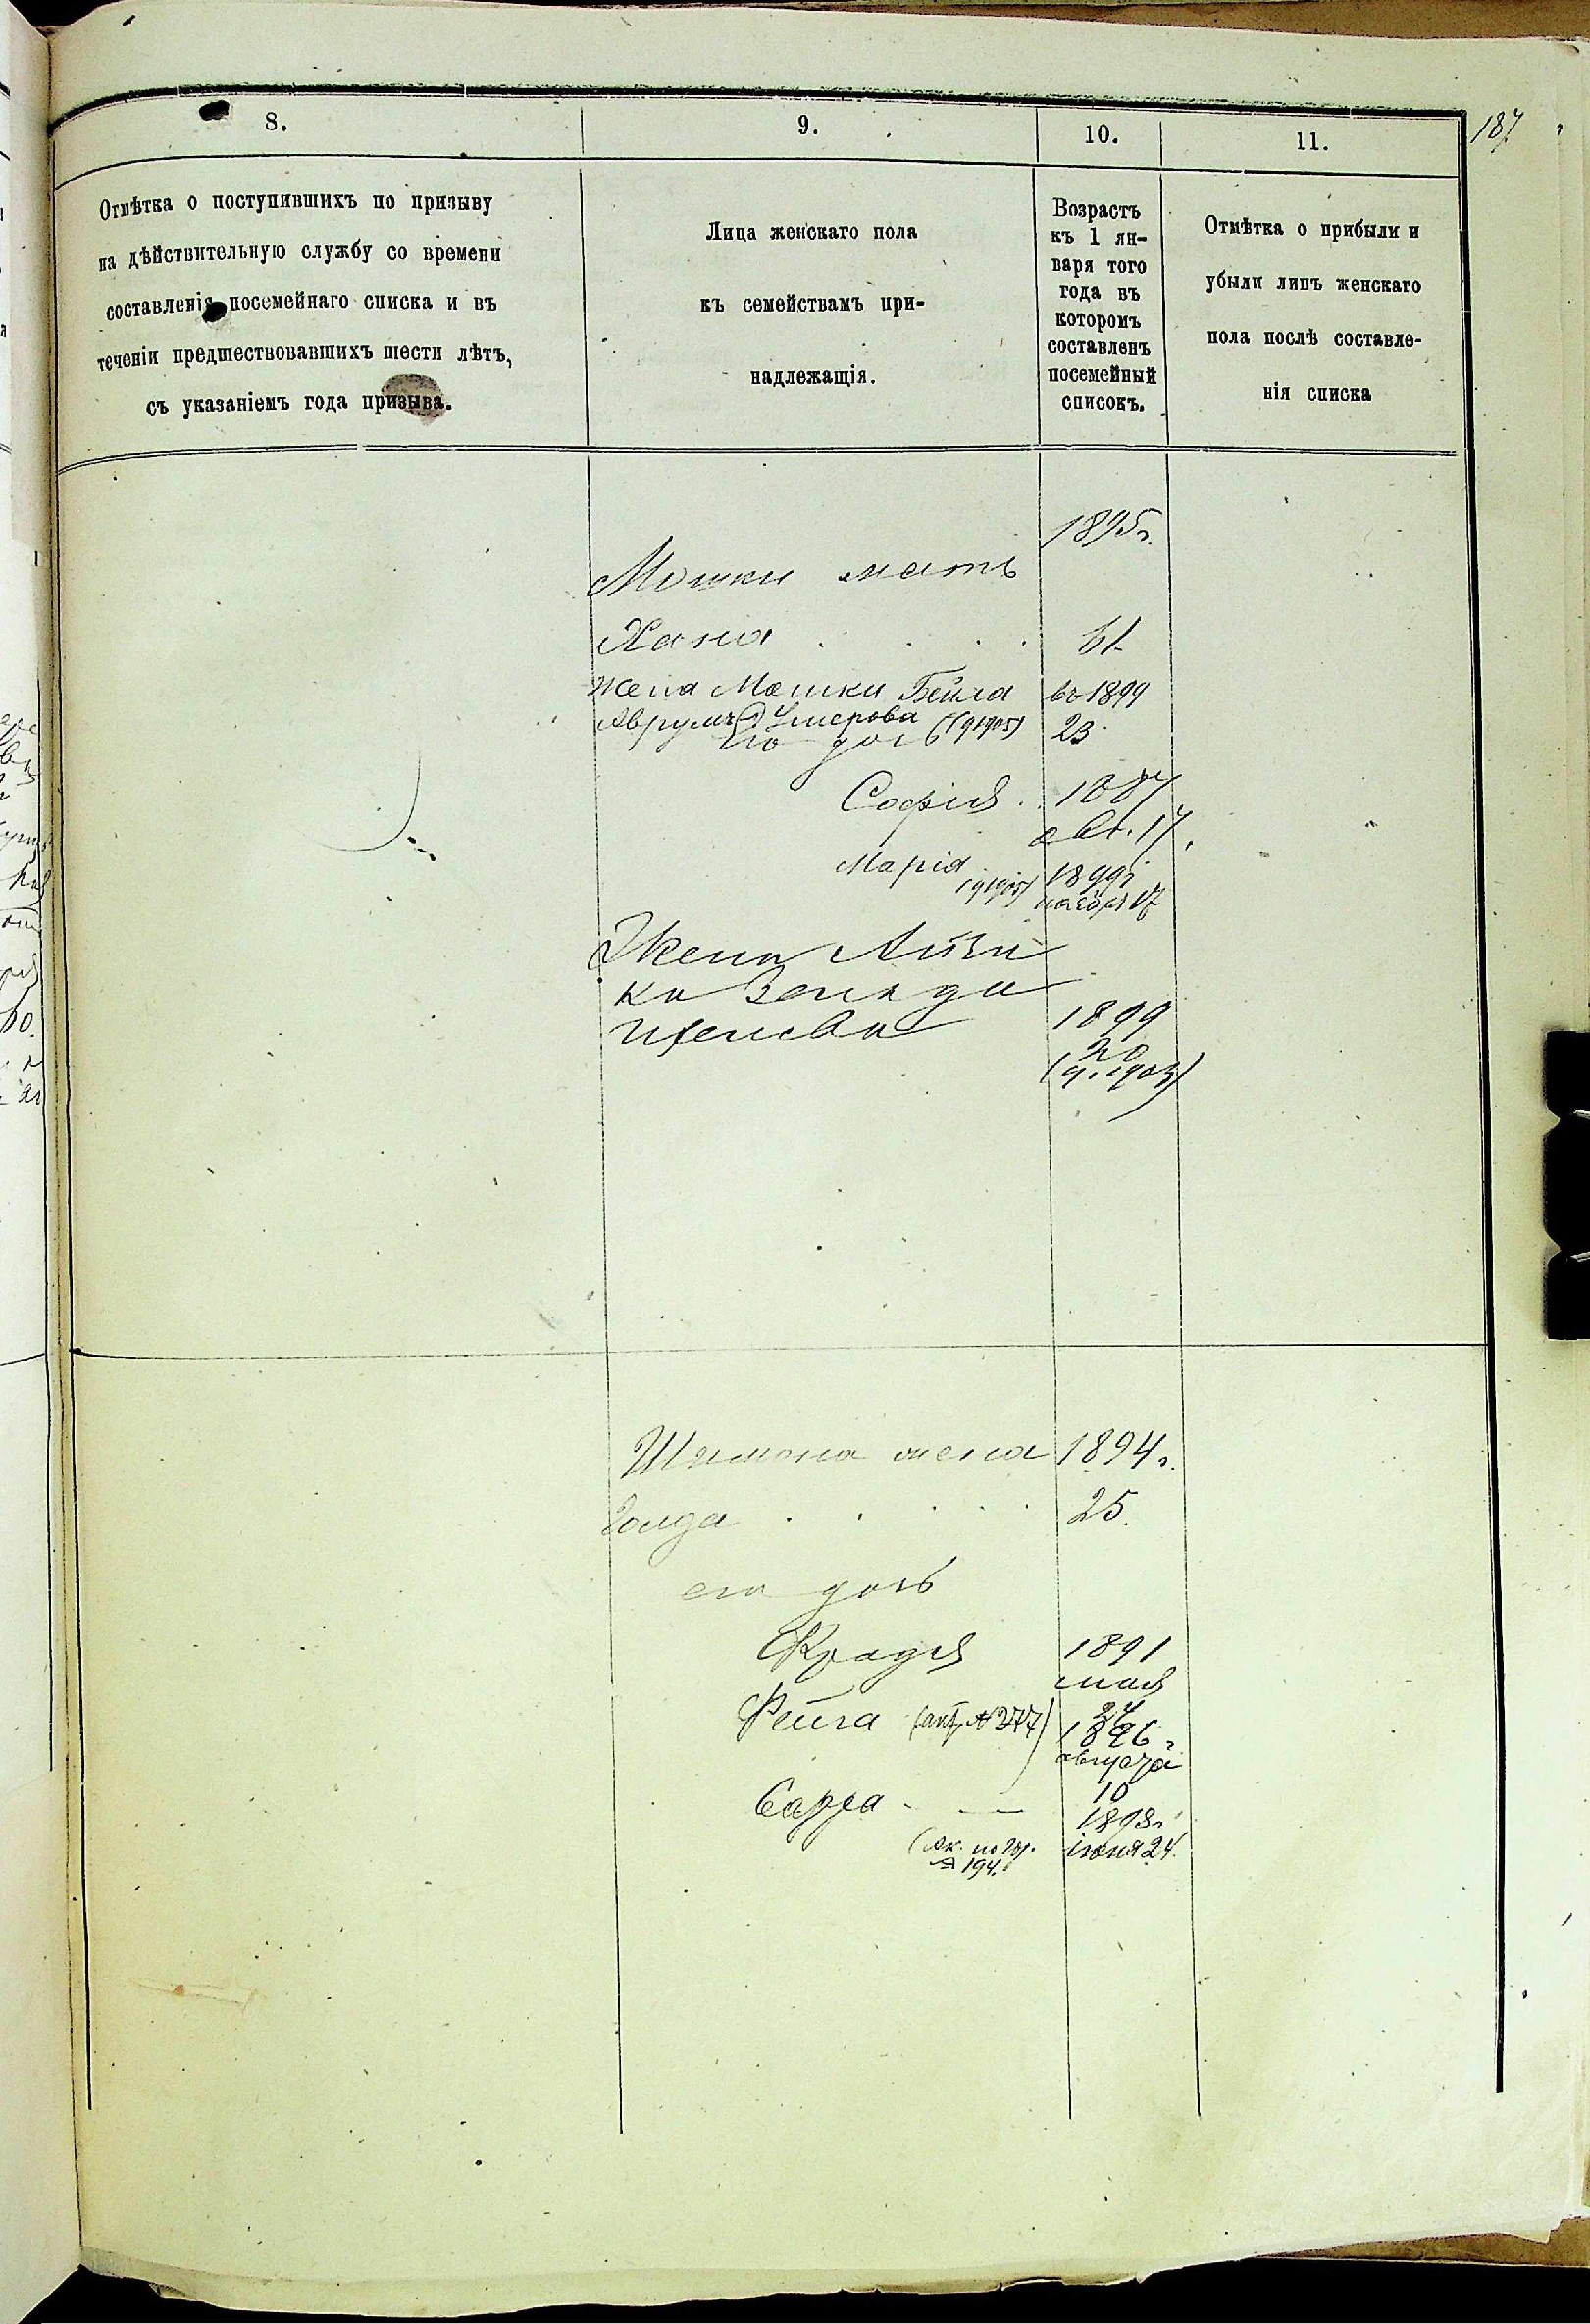 187
8.
9.
10.
11.
Отмѣтка о поступившихъ по призыву
на дѣйствительную службу со времени
составленія посемейнаго списка и въ
теченіи предшествовавшихъ шести лѣтъ,
съ указаніемъ года призыва.
Лица женскаго пола
къ семействамъ при-
надлежащія.
Возрастъ
къ 1 ян-
варя того
года въ
которомъ
составленъ
посемейный
списокъ.
Отмѣтка о прибыли и
убыли лицъ женскаго
пола послѣ составле-
нія списка
1895г.
Мошки мать
Хана . . . . 61
Жена Мошки Бейла въ 1899
23
Его дочь
Софія . .
17
Марія 1899г
ноября 17
Жена Айзи
ка
1899
20
Шимона жена 1894г.
Голда . . . . 25.
его дочь
1891
мая
24
Фейга № 277 1896г
августа
10
Сарра - — 1898г
іюня 24.
№ 194.